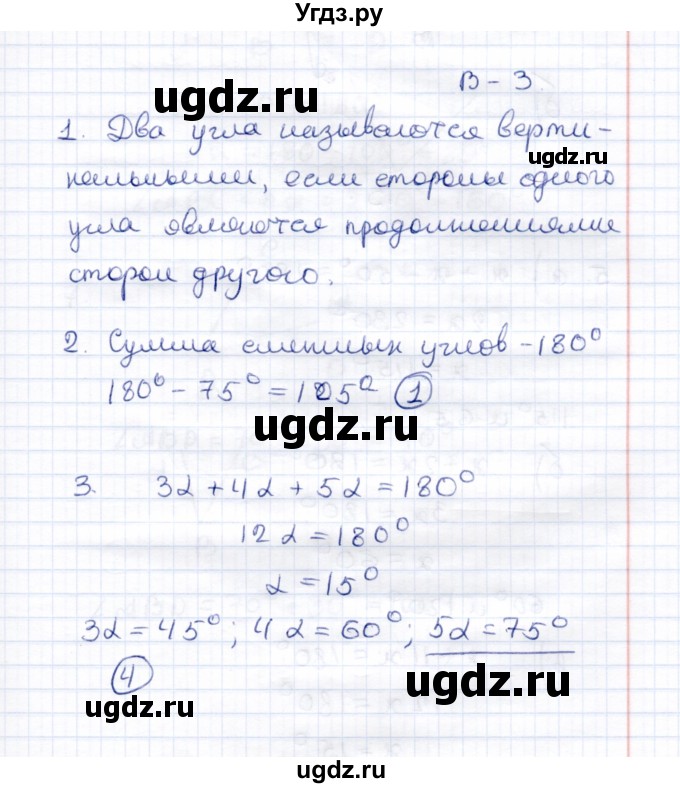 Угдз.ру
ugdz.ru
В-3.
1. Два угла называются верти-
ugdz.ru
кальными, если стороны одного
угла являются продолжениями
сторон другого.
ugdz.ru
2. Сумма смежных углов -180°
180° - 75° = 105° ①
ugdz.ru
3. 3α + 4α + 5α = 180°
12α = 180°
α = 15°
3α = 45°; 4α = 60°; 5α = 75°
④
ugdz.ru
ugdz.ru
ugdz.ru